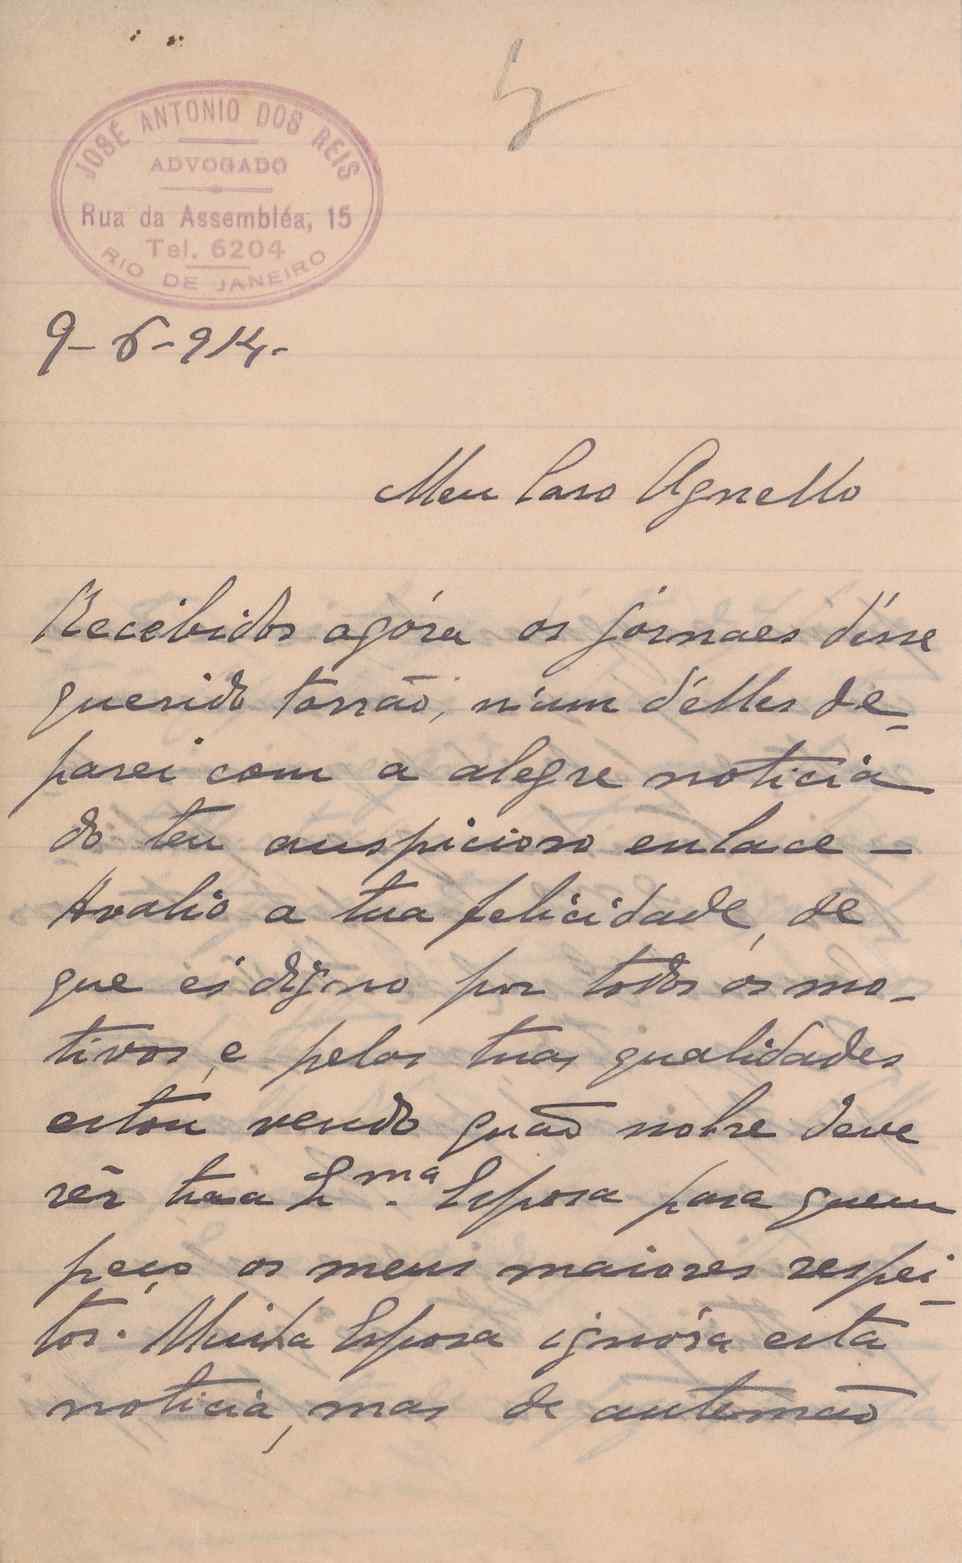 JOSÉ ANTONIO DOS REIS
ADVOGADO
Rua da Assembléa, 15
Tel. 6204
RIO DE JANEIRO
9-6-914.
Meu Caro Agnello
Recebidos agóra os jornaes d'ésse
querido torrão, n'um d'elles de-
parei com a alegre noticia
do teu auspicioso enlace –
Avalio a tua felicidade, de
que és digno por todos os mo-
tivos, e pelas tuas qualidades
estou vendo quão nobre deve
sêr tua Exma. Esposa para quem
peço os meus maiores respei-
tos. Minha Esposa ignóra esta
noticia, mas de antemão